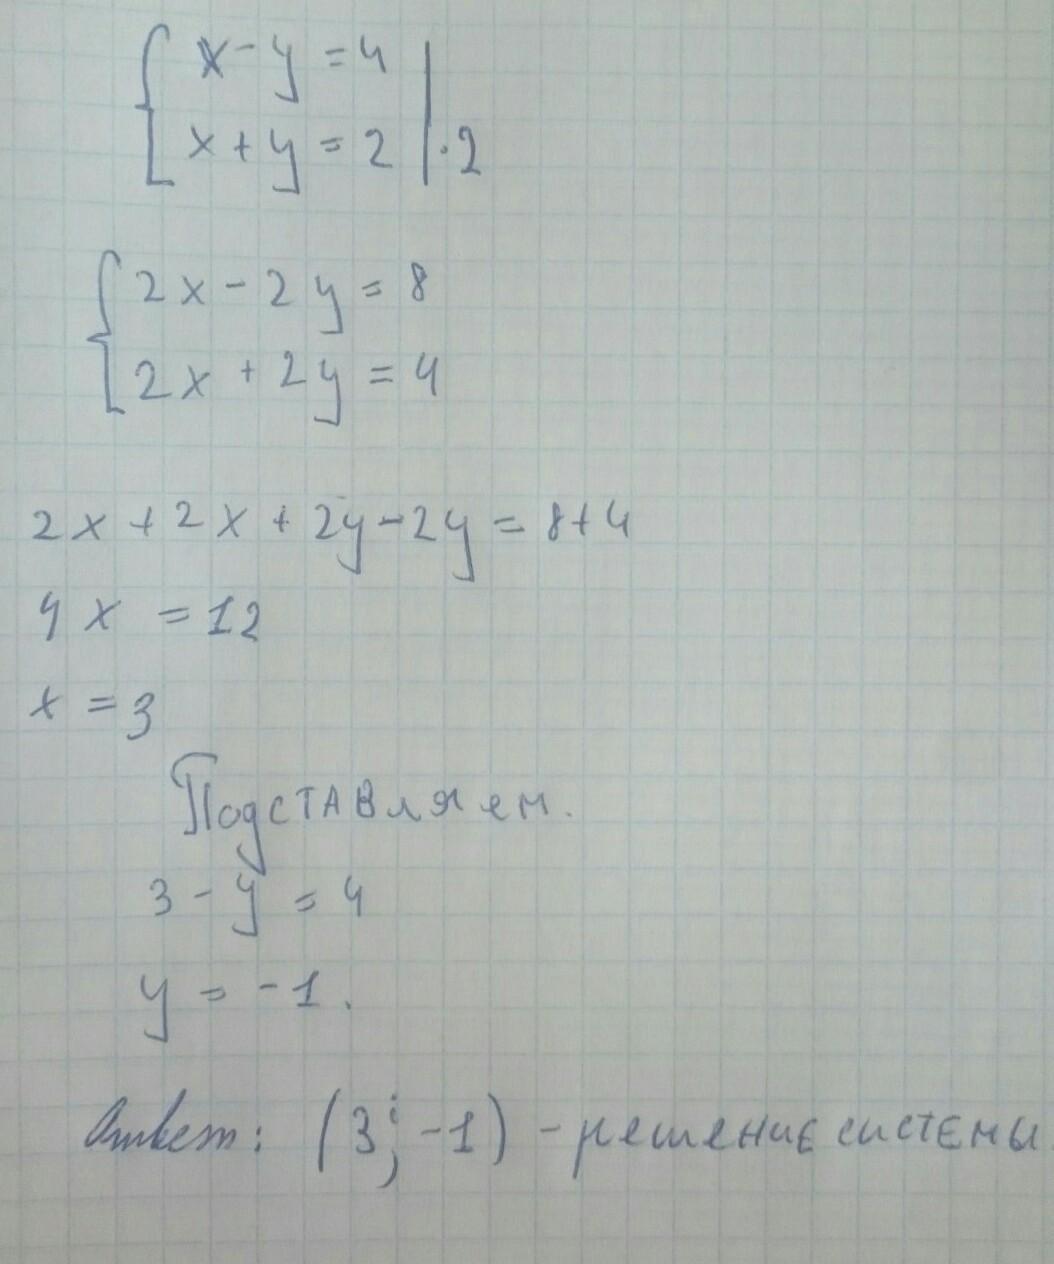 x - y = 4
x + y = 2 | · 2
2x - 2y = 8
2x + 2y = 4
2x + 2x + 2y - 2y = 8 + 4
4x = 12
x = 3
Подставляем.
3 - y = 4
y = -1.
Ответ: (3; -1) - решение системы